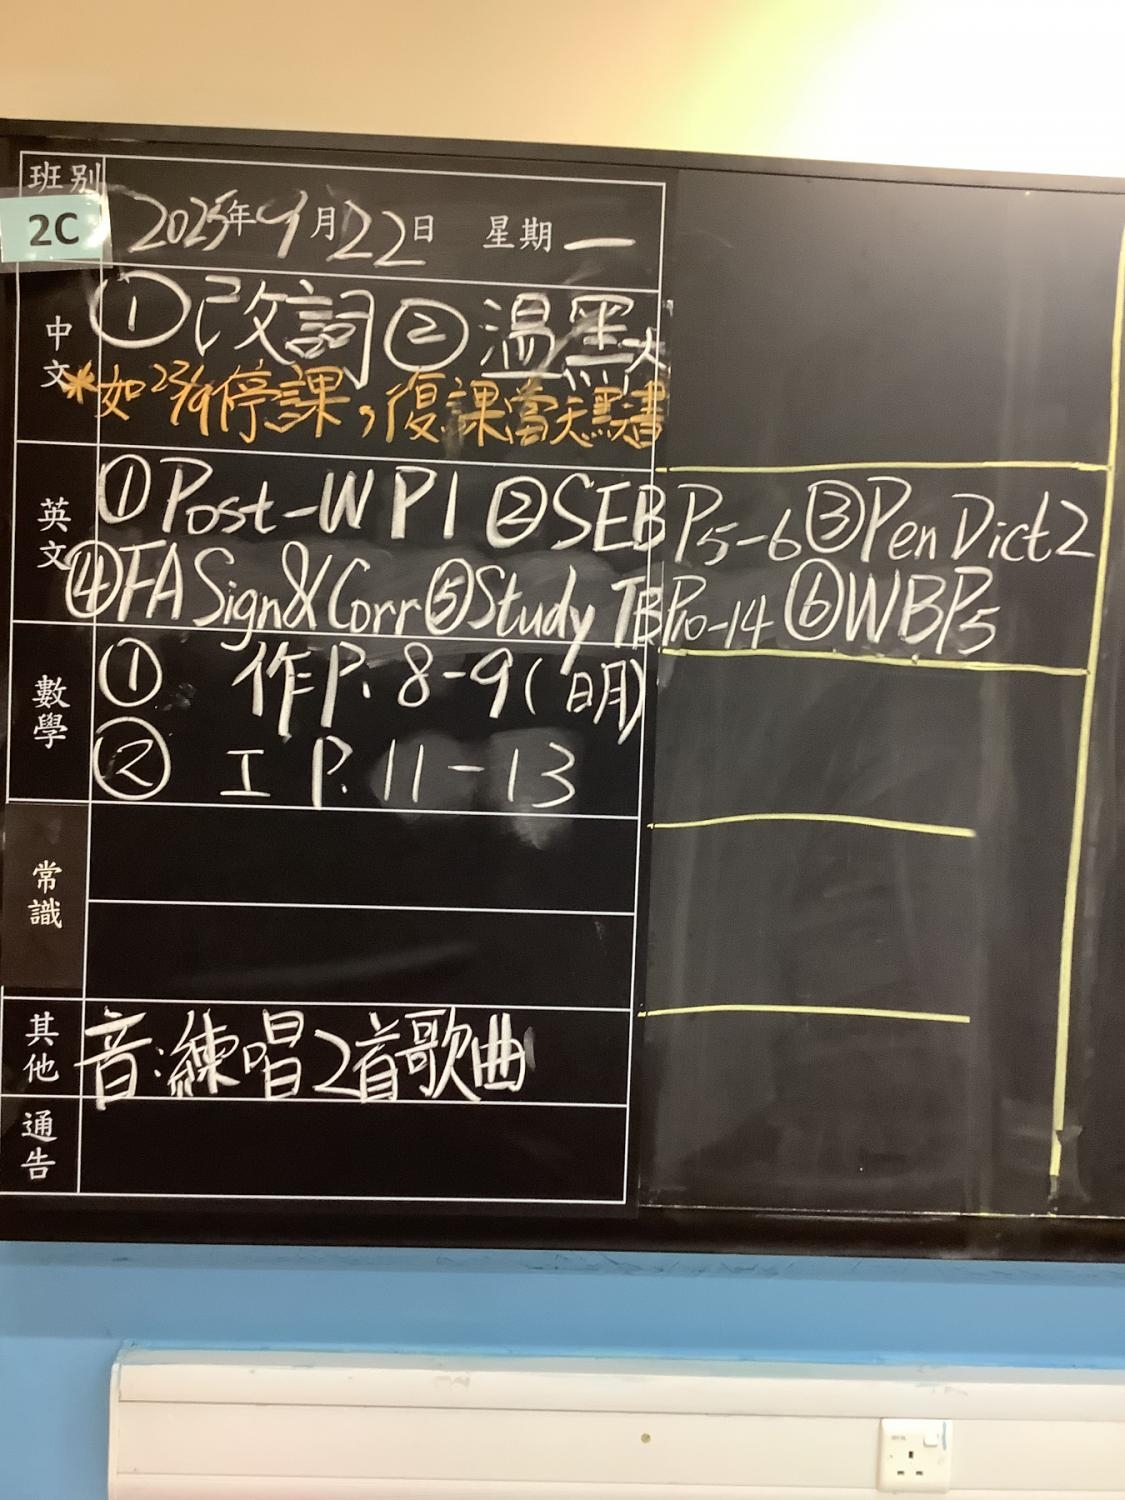 班別
2C
2025年9月22日 星期一
中文
①改詞 ②溫默大
*如23/9停課,復課當天默書
英文
①Post-WP1 ②SEB P5-6 ③Pen Dict2
④FA Sign&Corr ⑤Study TB P10-14 ⑥WBP5
數學
① 作P.8-9(明)
② 工 P.11-13
常識
其他
音:練唱2首歌曲
通告